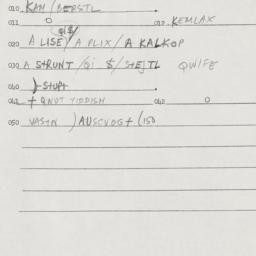 010 KAM / BERSTL
011 O 012 KEMLAX
QI$
020 A LISE / A PLIX / A KALKOP
030 A STRUNT / QI $ / STEJTL QWIFE
040 STUPT
041 + QNUT YIDDISH 042 O
050 VASTN ) AUSCVOG + (150